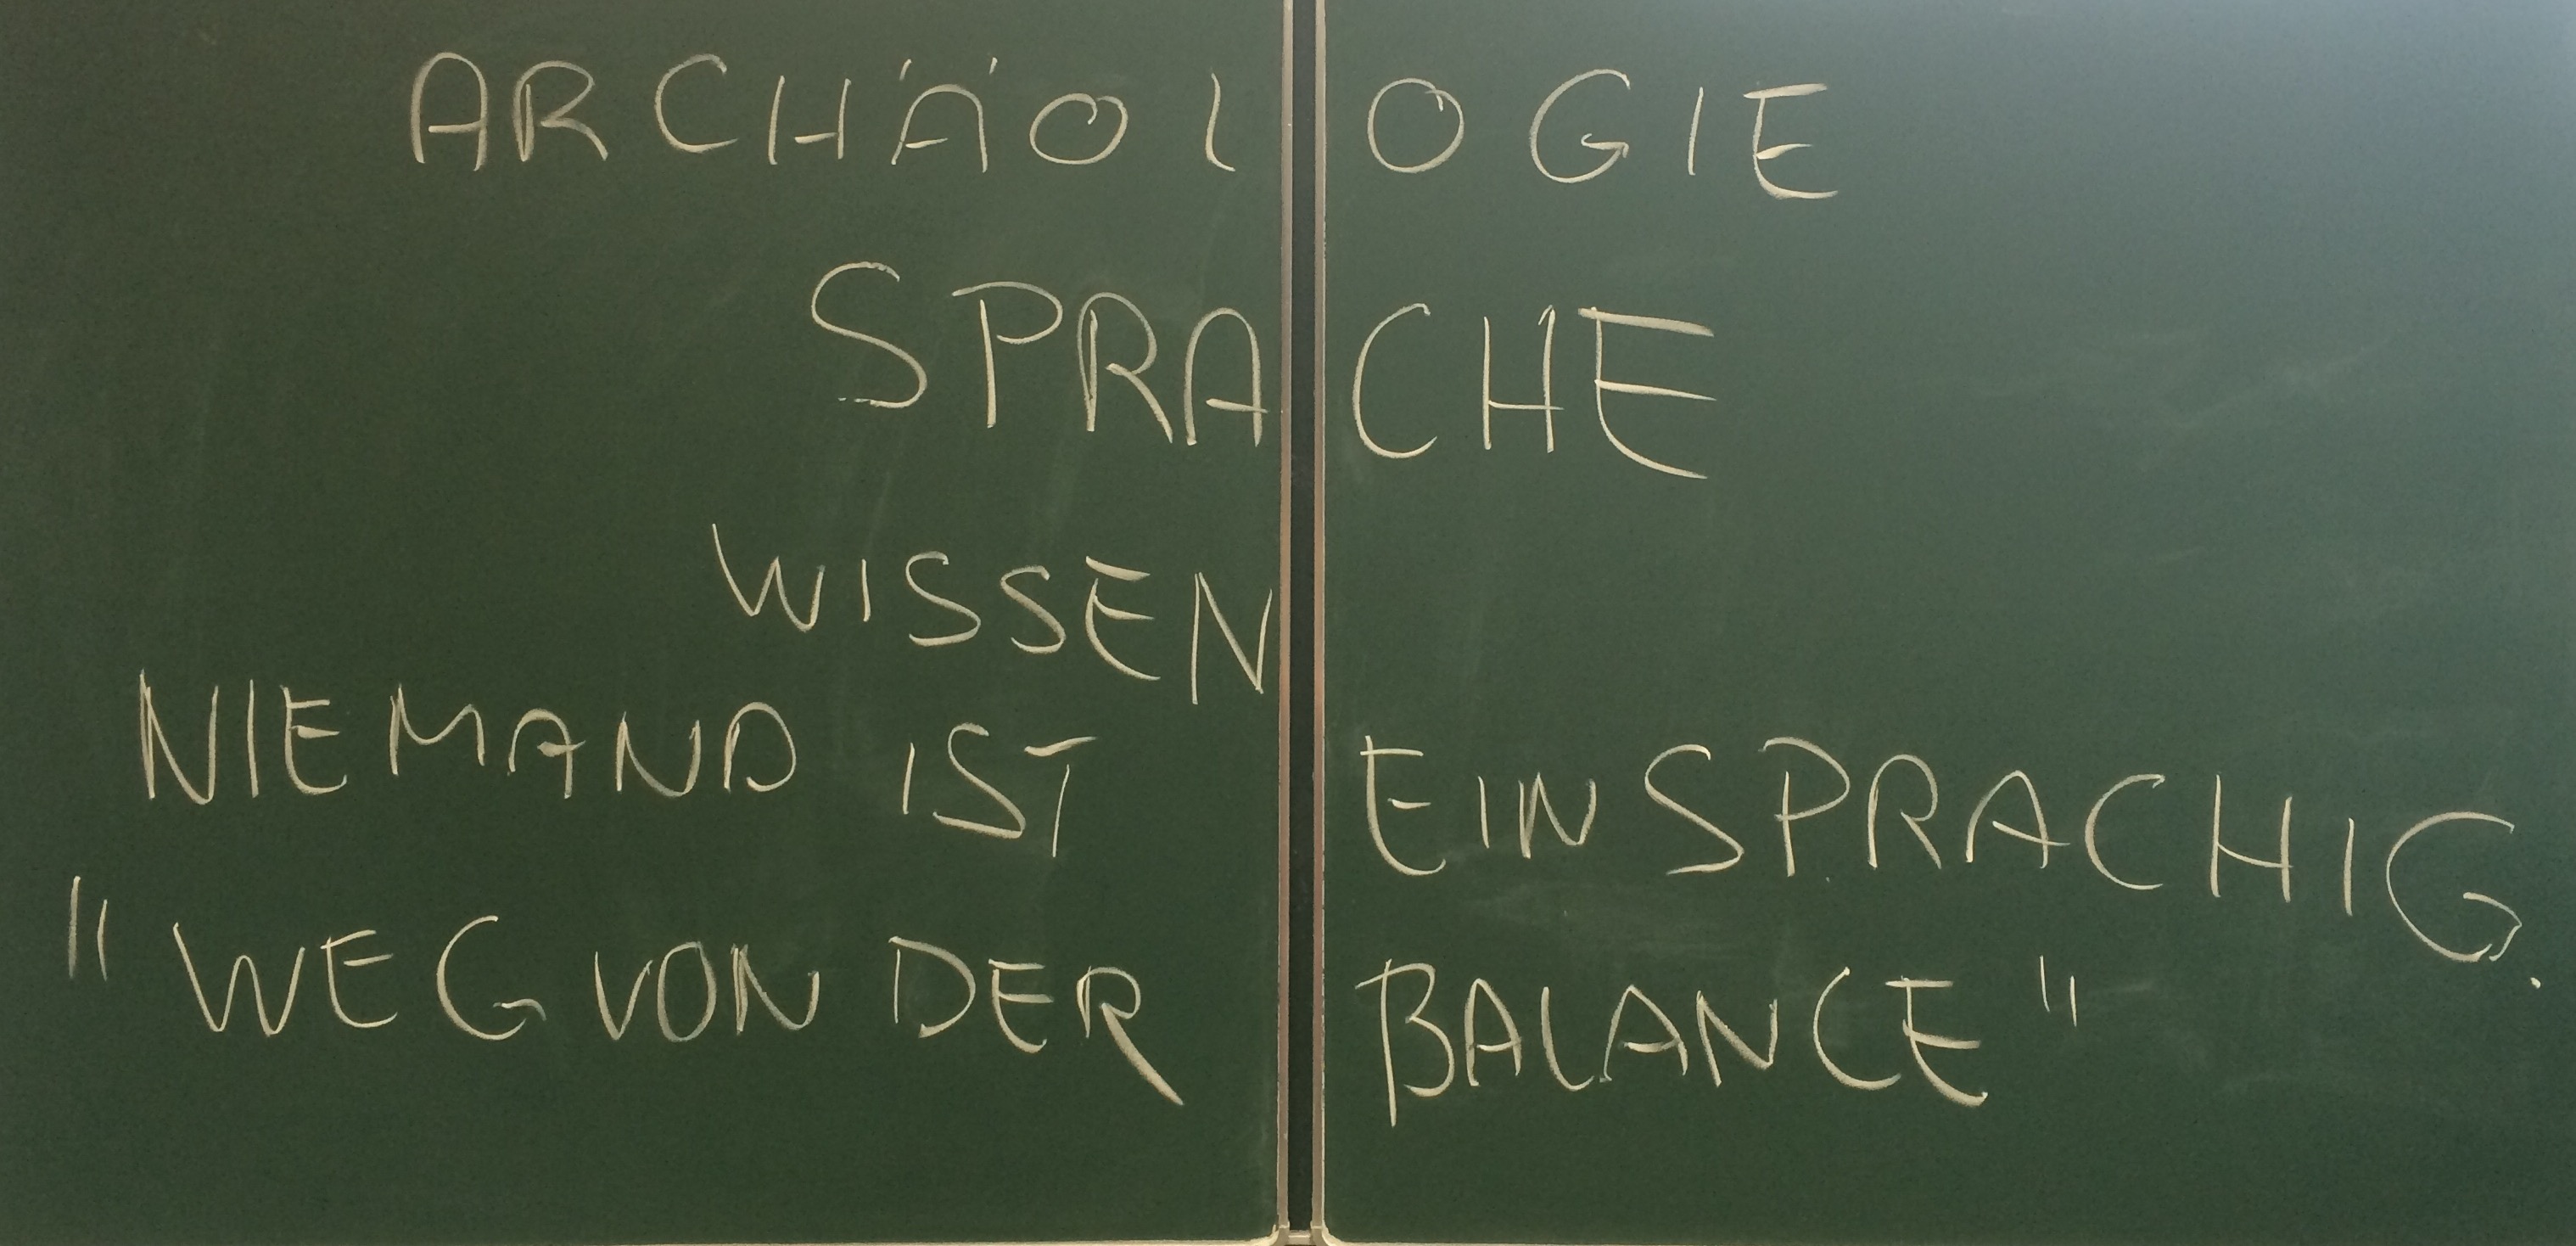 ARCHÄOLOGIE
SPRACHE
WISSEN
NIEMAND IST EINSPRACHIG.
"WEG VON DER BALANCE"